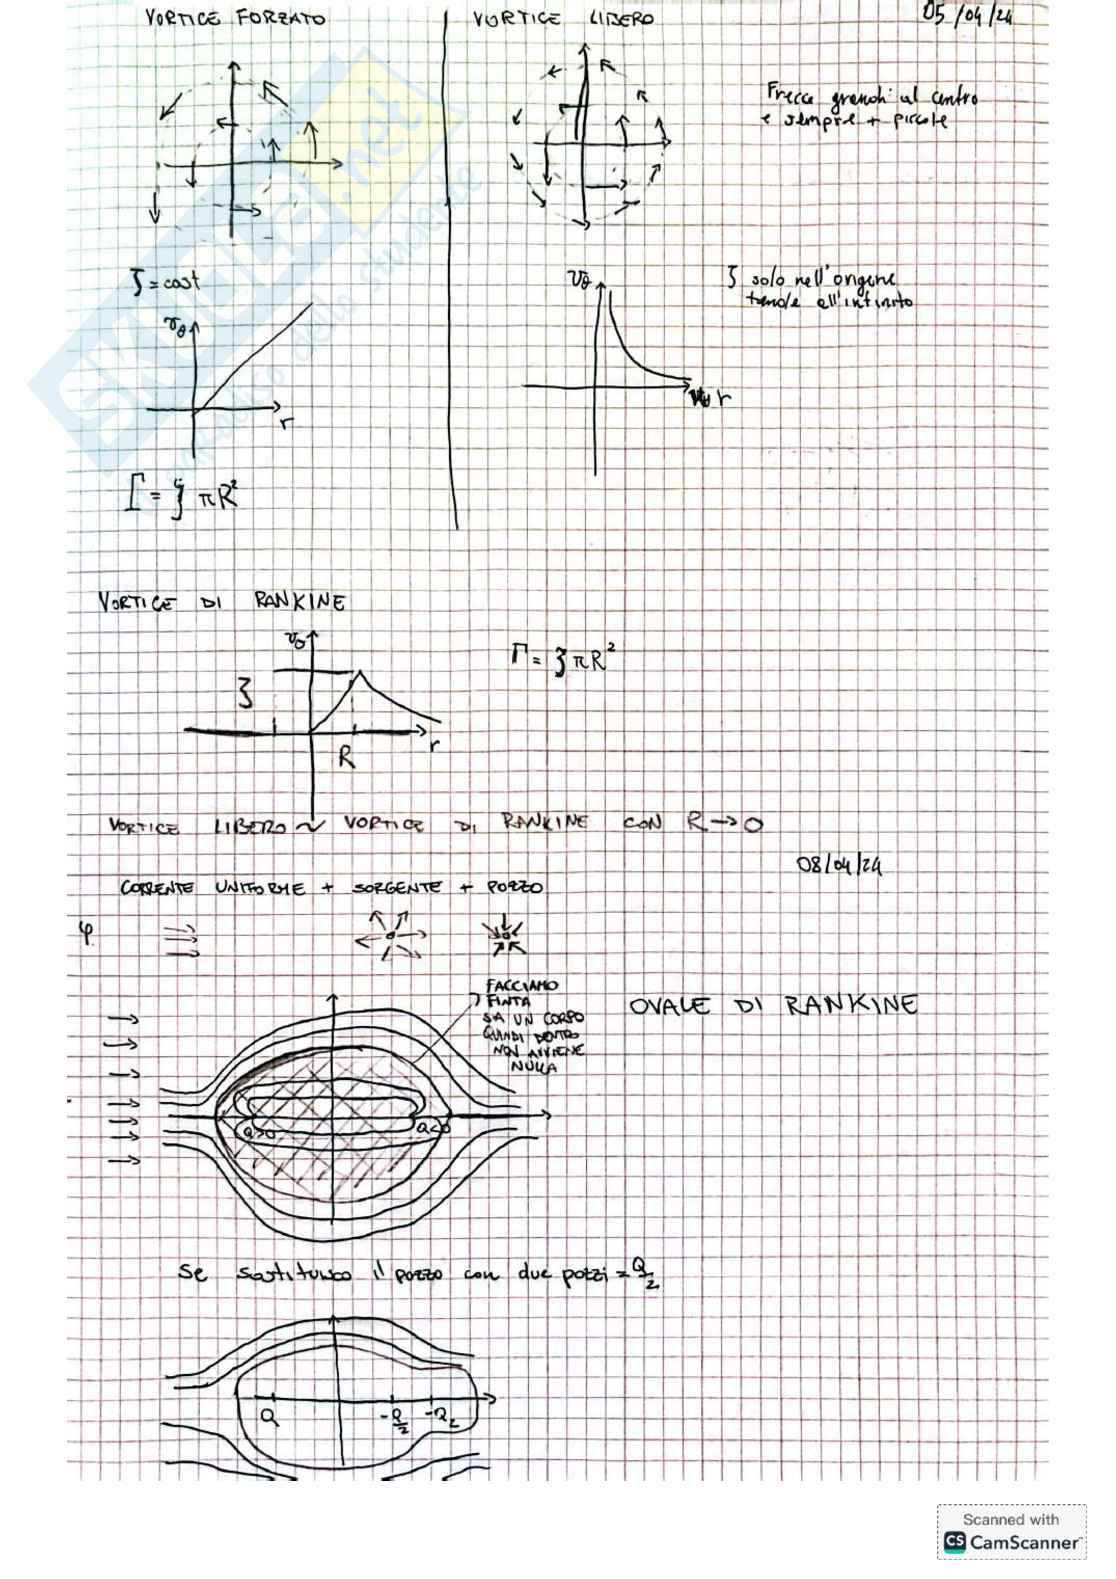 VORTICE FORZATO
VORTICE LIBERO
05/04/24
Frecce grandi al centro
e sempre + piccole
ζ = cost
r
Γ = ζ π R²
v_θ
r
ζ solo nell'origine
tende all'infinito
VORTICE DI RANKINE
v_θ
ζ
R
r
Γ = ζ π R²
VORTICE LIBERO ~ VORTICE DI RANKINE CON R → 0
08/04/24
CORRENTE UNIFORME + SORGENTE + POZZO
φ
FACCIAMO
FINTA
SIA UN CORPO
QUINDI DENTRO
NON AVVIENE
NULLA
OVALE DI RANKINE
Q>0
Q<0
Se sostituisco il pozzo con due pozzi = Q/2
Q
-Q/2
-Q/2
SKUOLA.net
Scanned with
CS CamScanner